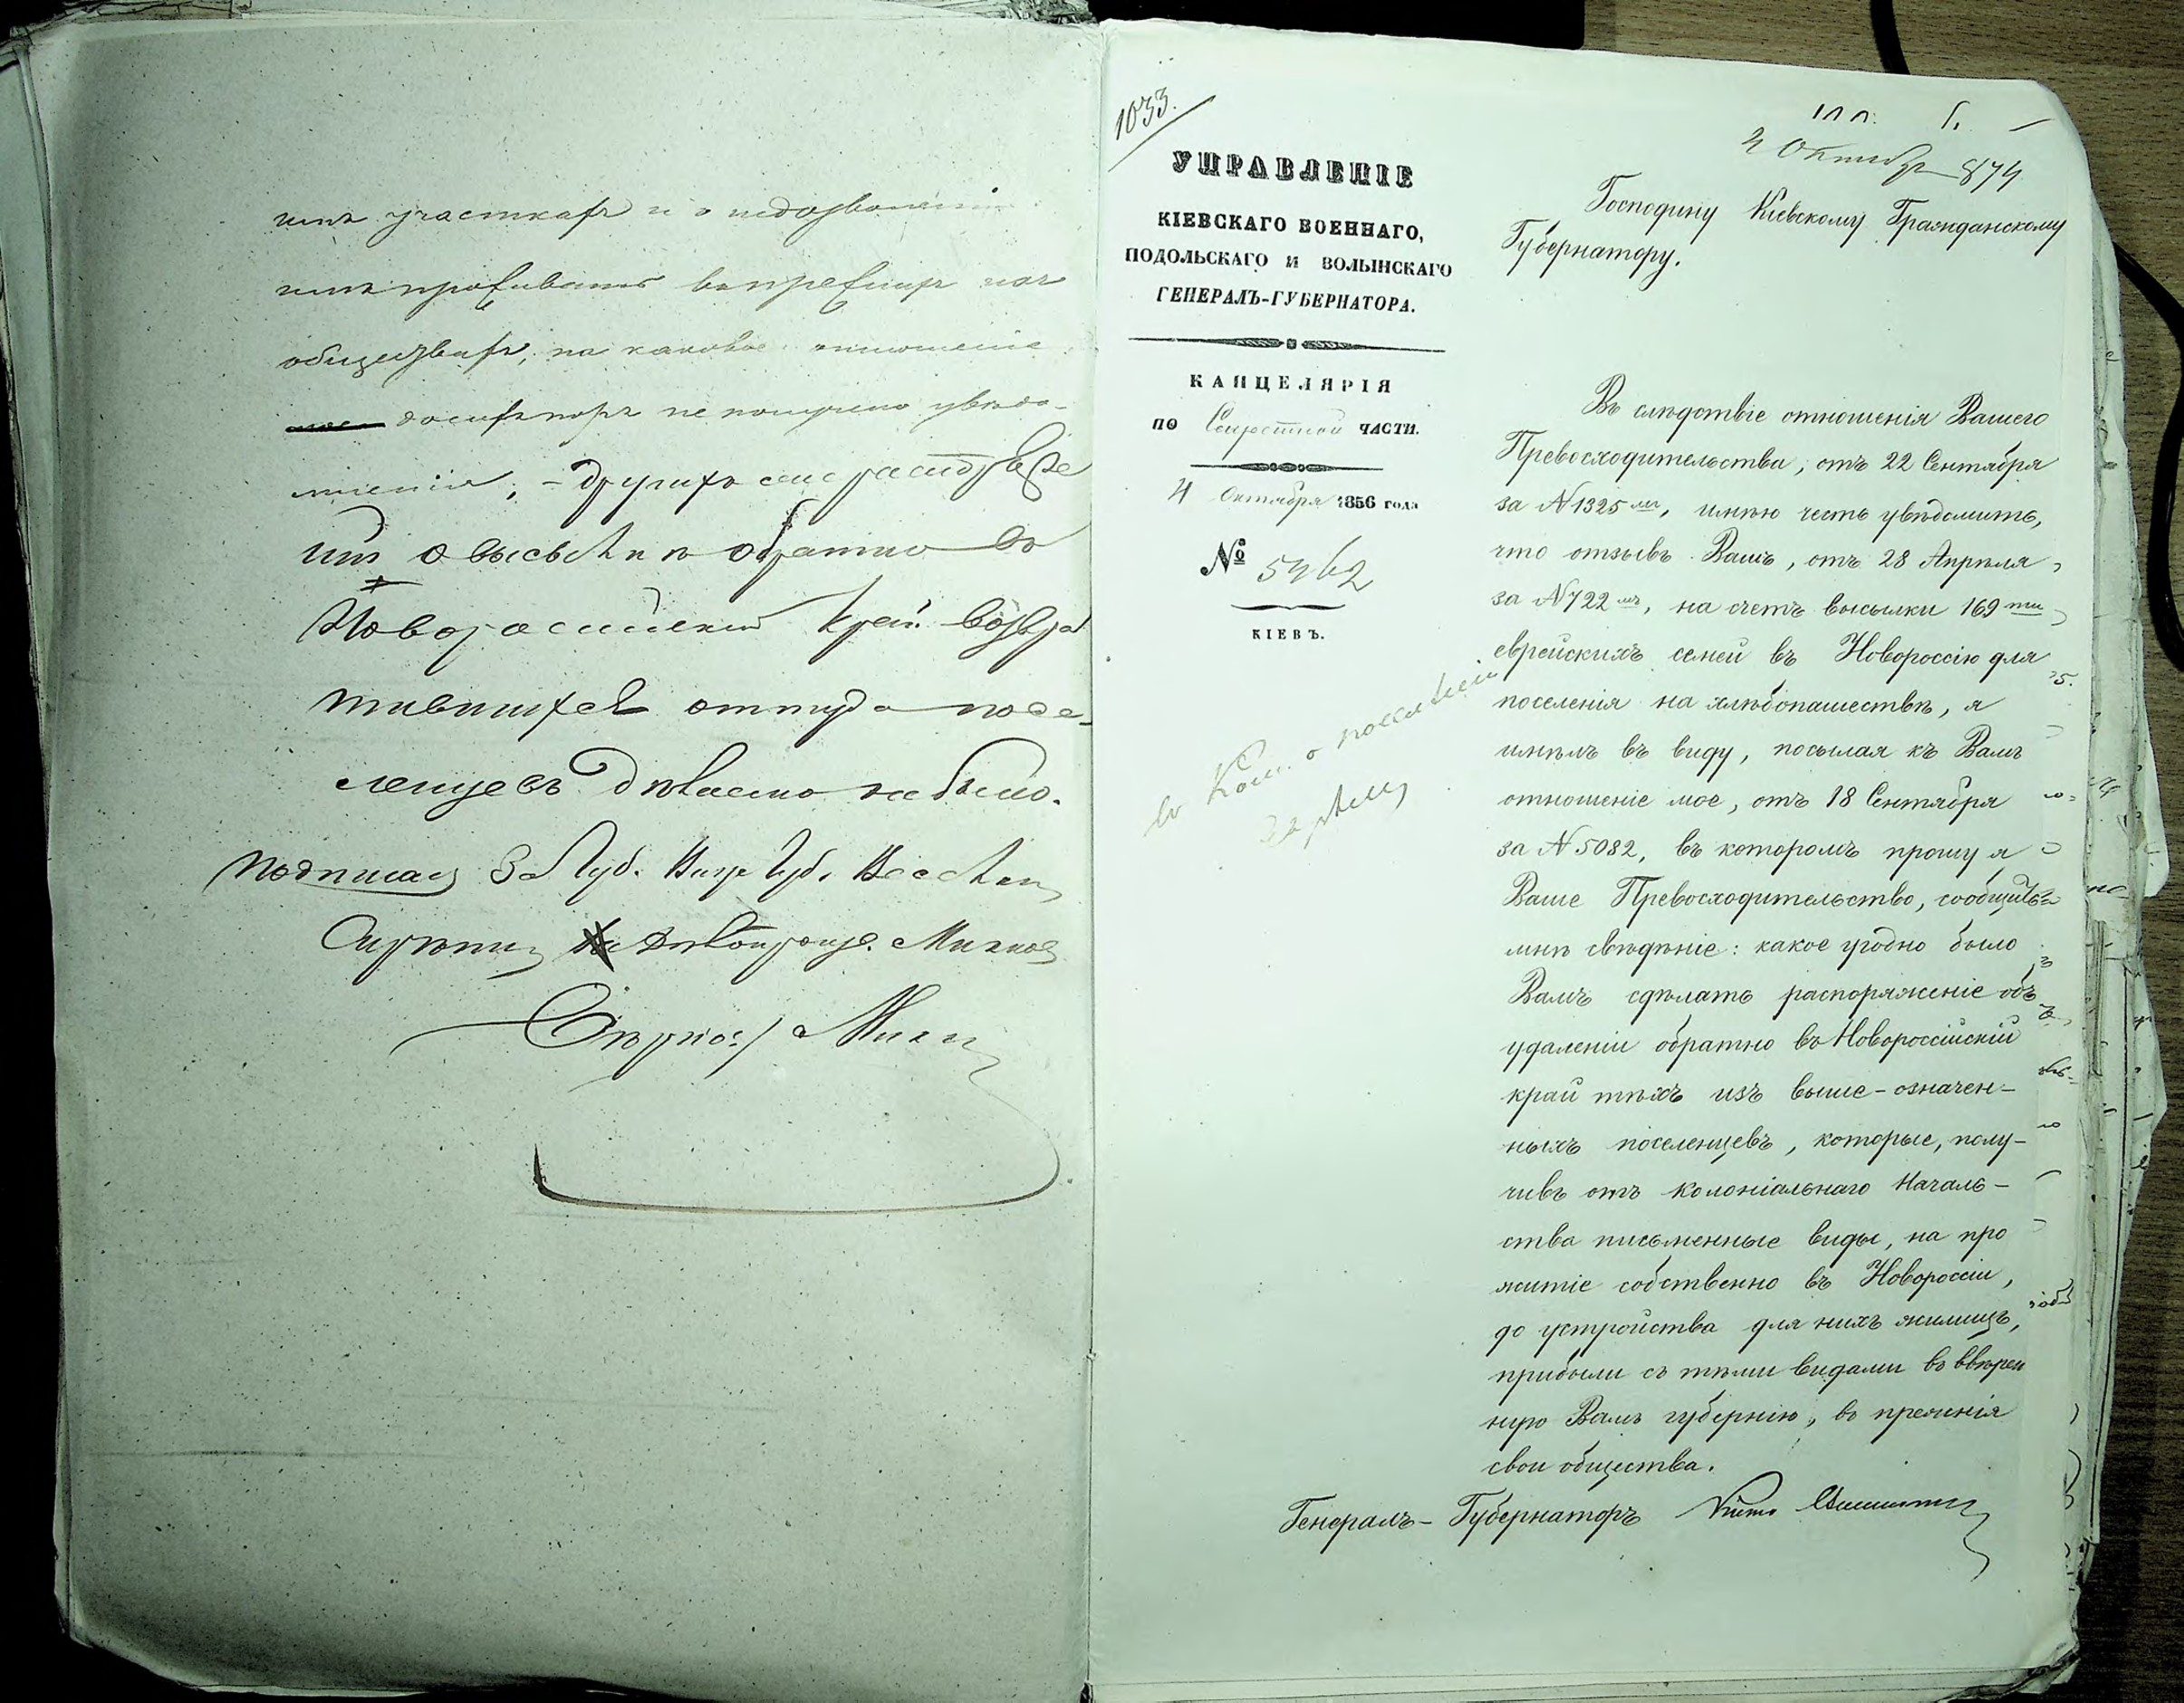 имъ участкахъ и о недозволеніи
имъ проживать въ прежнихъ ихъ
обществахъ, на каковое отношеніе
до сихъ поръ не получено увѣдо-
мленія, - другихъ
о высылкѣ обратно въ
Новоросійскій край возвра
тившихся оттуда посе-
ленцевъ дѣлаемо не было.
Подписалъ За Губ. Вице Губ.
Скрѣпилъ
Вѣрно:
1033.
УПРАВЛЕНІЕ
КІЕВСКАГО ВОЕННАГО,
ПОДОЛЬСКАГО И ВОЛЫНСКАГО
ГЕНЕРАЛЪ-ГУБЕРНАТОРА.
КАНЦЕЛЯРІЯ
ПО Секретной ЧАСТИ.
4 Октября 1856 года
№ 5462
КІЕВЪ.
въ Ком. о
Октября 874
Господину Кіевскому Гражданскому
Губернатору.
Въ слѣдствіе отношенія Вашего
Превосходительства, отъ 22 Сентября
за № 1325мъ, имѣю честь увѣдомить,
что отзывъ Вашъ, отъ 28 Апрѣля
за № 722мъ, на счетъ высылки 169ти
еврейскихъ семей въ Новороссію для
поселенія на хлѣбопашествѣ, я
имѣлъ въ виду, посылая къ Вамъ
отношеніе мое, отъ 18 Сентября
за № 5082, въ которомъ прошу я
Ваше Превосходительство, сообщить
мнѣ свѣдѣніе: какое угодно было
Вамъ сдѣлать распоряженіе объ
удаленіи обратно въ Новороссійскій
край тѣхъ изъ выше-означен-
ныхъ поселенцевъ, которые, полу-
чивъ отъ колоніальнаго Началь-
ства письменные виды, на про
житіе собственно въ Новороссіи,
до устройства для нихъ жилищъ,
прибыли съ тѣми видами въ ввѣрен
ную Вамъ губернію, въ прежнія
свои общества.
Генералъ-Губернаторъ